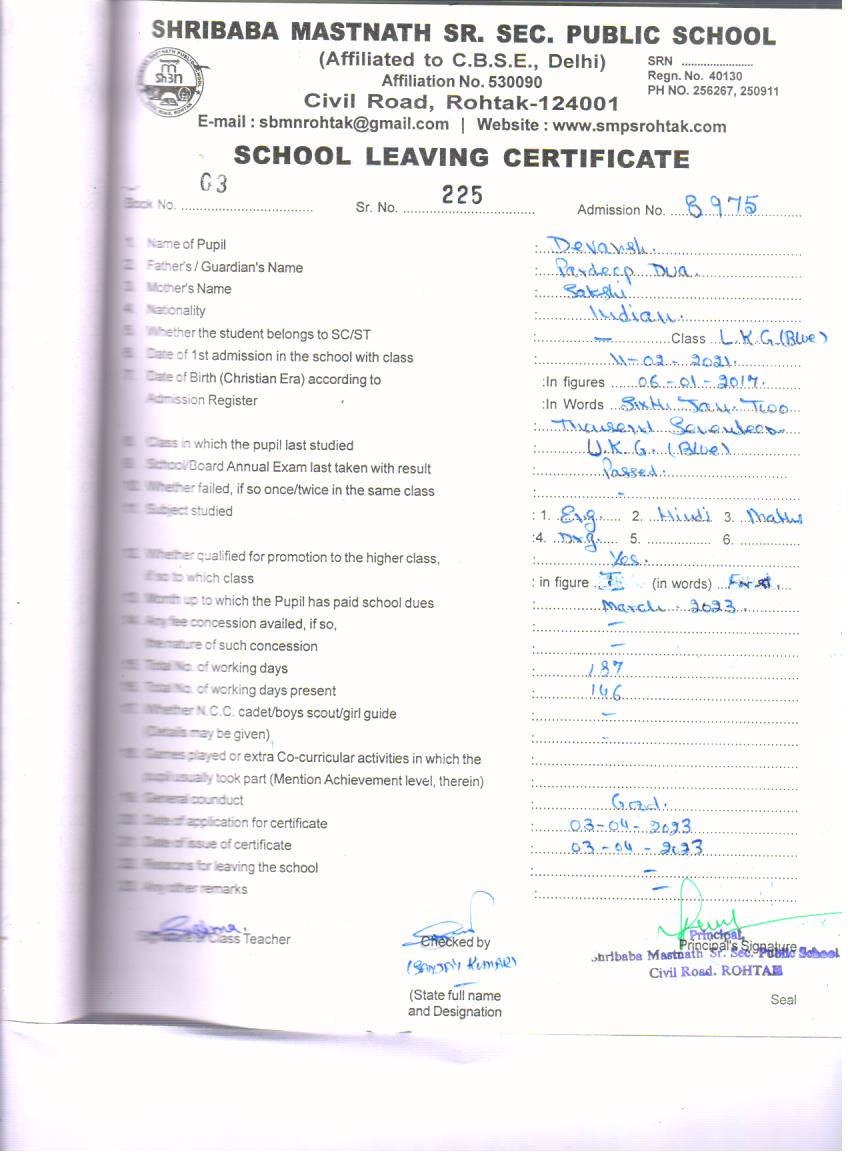 SHRIBABA MASTNATH SR. SEC. PUBLIC SCHOOL
(Affiliated to C.B.S.E., Delhi)
SRN ......................
Affiliation No. 530090
Regn. No. 40130
Civil Road, Rohtak-124001
PH NO. 256267, 250911
E-mail : sbmnrohtak@gmail.com | Website : www.smpsrohtak.com
SCHOOL LEAVING CERTIFICATE
Book No. 03 Sr. No. 225 Admission No. 8975
1. Name of Pupil : Devansh.
2. Father's / Guardian's Name : Pardeep Dua.
3. Mother's Name : Sakshi
4. Nationality : Indian.
5. Whether the student belongs to SC/ST : — Class L.K.G.(Blue)
6. Date of 1st admission in the school with class : 11-02-2021.
7. Date of Birth (Christian Era) according to :In figures 06-01-2017.
Admission Register :In Words Sixth Jan. Two
Thousand Seventeen
8. Class in which the pupil last studied : U.K.G. (Blue)
9. School/Board Annual Exam last taken with result : Passed.
10. Whether failed, if so once/twice in the same class : -
11. Subject studied : 1. Eng. 2. Hindi 3. Maths
:4. Drg. 5. ................ 6. ...............
12. Whether qualified for promotion to the higher class, : Yes.
if so to which class : in figure I (in words) First.
13. Month up to which the Pupil has paid school dues : March - 2023.
14. Any fee concession availed, if so, : —
the nature of such concession : —
15. Total No. of working days : 187
16. Total No. of working days present : 146
17. Whether N.C.C. cadet/boys scout/girl guide : —
(Details may be given) : -
18. Games played or extra Co-curricular activities in which the :
pupil usually took part (Mention Achievement level, therein) :
19. General counduct : Good.
20. Date of application for certificate : 03-04-2023
21. Date of issue of certificate : 03-04-2023
22. Reasons for leaving the school : —
23. Any other remarks : —
Signature of Class Teacher
Checked by
(SANJAY KUMAR)
(State full name
and Designation
Principal,
Principal's Signature
Shribaba Mastnath Sr. Sec. Public School
Civil Road. ROHTAK
Seal